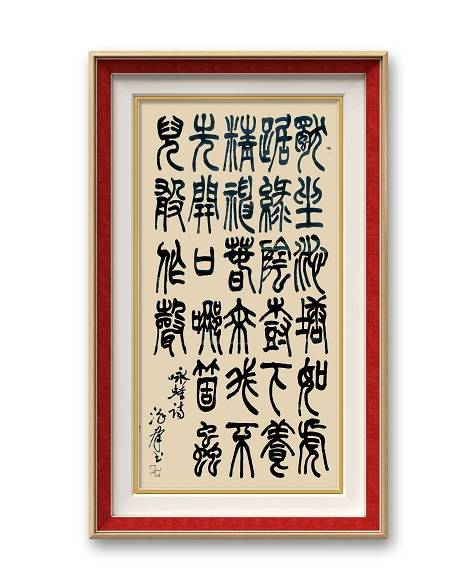 獨坐池塘如虎
踞綠陰樹下養
精神春來我不
先開口哪箇蟲
兒敢作聲
咏蛙诗